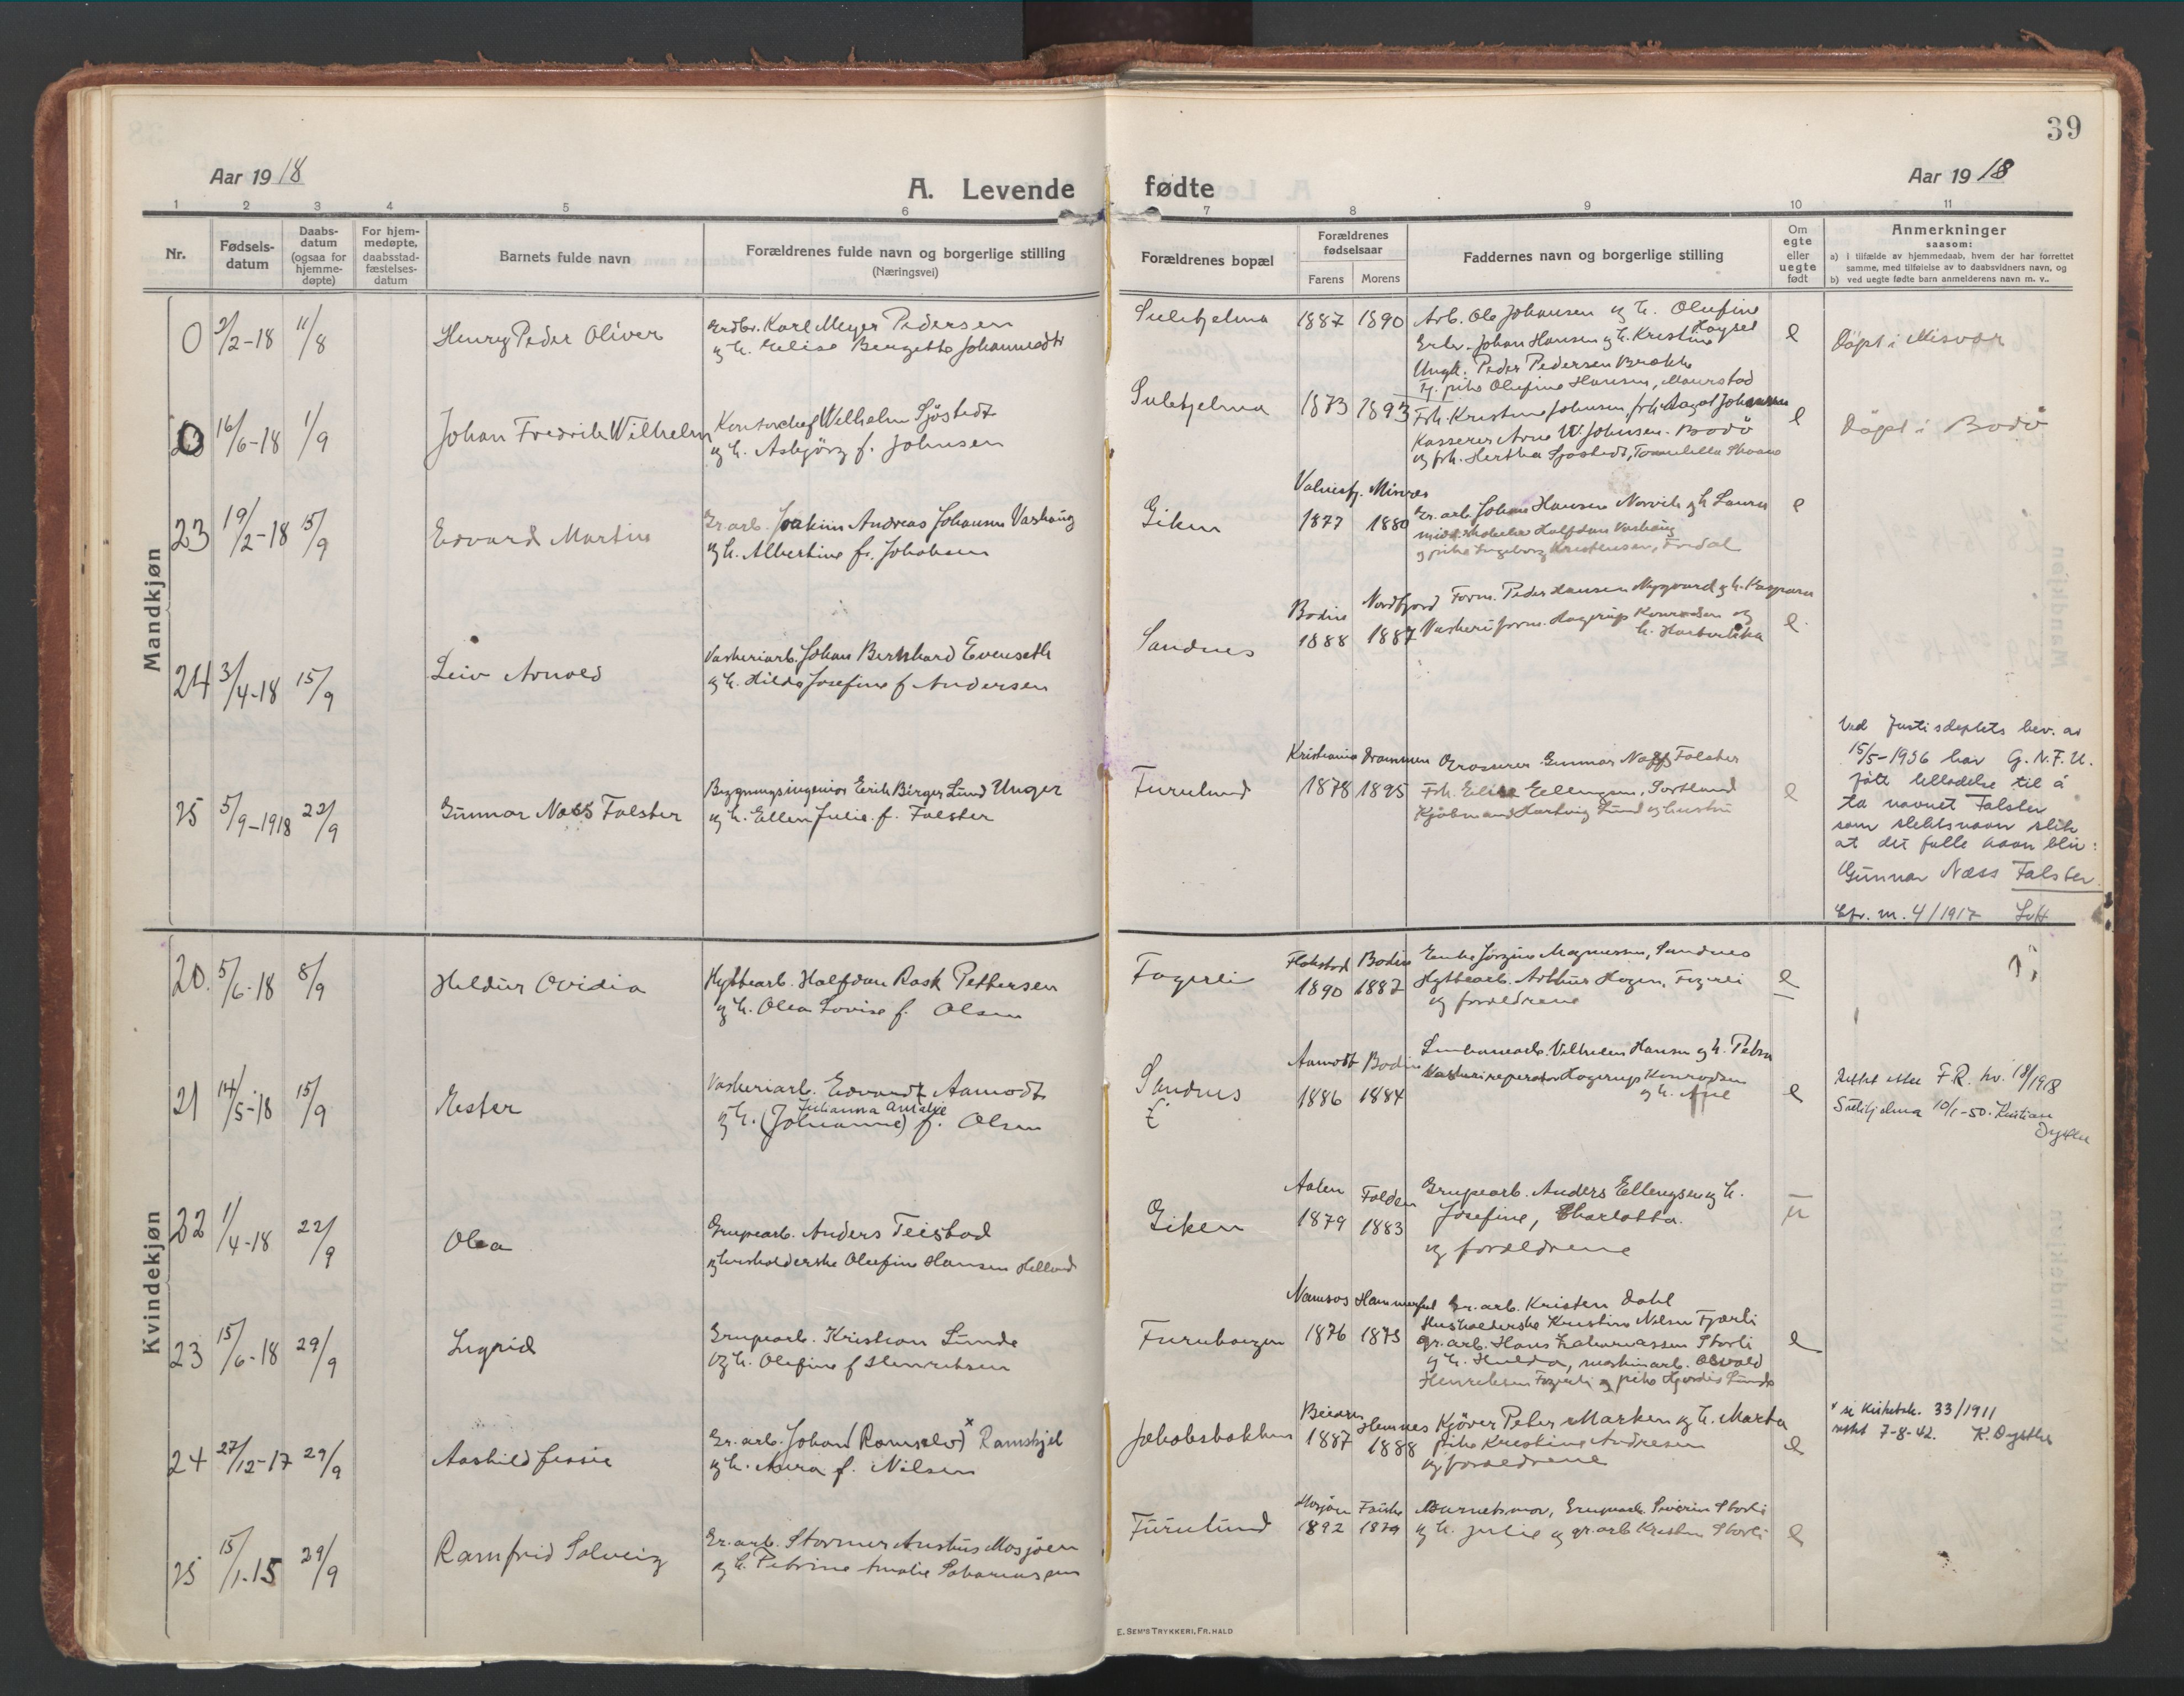 39
Aar 1918
A. Levende fødte
Aar 1918
1 2 3 4 5 6 7 8 9 10 11
Nr.
Fødsels-
datum
Daabs-
datum
(ogsaa for
hjemme-
døpte)
For hjem-
medøpte,
daabsstad-
fæstelses-
datum
Barnets fulde navn
Forældrenes fulde navn og borgerlige stilling
(Næringsvei)
Forældrenes bopæl
Forældrenes
fødselsaar
Farens Morens
Faddernes navn og borgerlige stilling
Om
egte
eller
uegte
født
Anmerkninger
saasom:
a) i tilfælde av hjemmedaab, hvem der har forrettet
samme, med tilføielse av to daabsvidners navn, og
b) ved uegte fødte barn anmelderens navn m. v..
Mandkjøn
0 2/2-18 11/8 Henry Peder Oliver
Karl Meyer Pedersen
og h. Elise Bergette
Sulitjelma 1887 1890
Arb. Ole Johansen og h. Olufine
Johan Hansen og h. Kristine
Ungk. Peder Pedersen Brække
pike Olufine Hansen,
e
Døpt i Misvær
0 16/6-18 1/9 Johan Fredrik Wilhelm
Kontorchef Wilhelm Sjöstedt
og h. Asbjörg f. Johnsen
Sulitjelma 1873 1893
Frk. Kristine Johnsen, frk. Aagot Johnsen
Kasserer Arne W. Johnsen. Bodö
og frk. Hertha Sjöstedt,
e
Döpt i Bodö
23 19/2-18 15/9 Edvard Martin
Gr.arb. Joakim Andreas Johansen Vashaug
og h. Albertine f. Jakobsen
Giken
Valnesfj. Misvær
1877 1880
Gr. arb. Johan Hansen Norvik og h. Laura
Halfdan Vashaug
og pike Ingeborg Kristensen,
e
24 3/4-18 15/9 Leiv Arnold
Vaskeriarb. Johan Bernhard Evenseth
og h. Hilda Josefine f Andersen
Sandnes
Bodin Nordfjord
1888 1887
Form. Peder Hansen Nygaard og h. Kaspara
Vaskeriform. Hagerup Konradsen og
h.
e.
25 5/9-1918 22/9 Gunnar Næss Falster
Bygningsingeniør Erik Birger Lund Unger
og h. Ellen Julie f. Falster
Furulund
Kristiania Drammen
1878 1895
Grosserer Gunnar Næss Falster
Frk. Elise Ellingsen, Sortland
Kjøbmand Hartvig Lund og hustru
e
Ved Justisdeptets bev. av
15/5-1936 har G.N.F.U.
fått tillatelse til å
ta navnet Falster
som slektsnavn slik
at det fulle navn blir:
Gunnar Næss Falster
Cfr. m. 4/1917
Kvindekjøn
20. 5/6-18 8/9 Heldur Ovidia
Hyttearb. Halfdan Rask Pettersen
og h. Olea Lovise f. Olsen
Fagerli
Flakstad Bodin
1890 1887
Enke Jörgine Magnussen, Sandnes
Hyttearb. Arthur Hagen, Fagerli
og forældrene
e
21 14/5-18 15/9 Ester
Vaskeriarb. Edvardt Aamodt
Julianna Amalie
og h. (Johanne) f. Olsen
Sandnes
Aamodt Bodin
1886 1884
Vilhelm Hansen og h. Petra
Vaskerireparatør Hagerup Konradsen
og h.
e
Rettet etter F.R. nr. 18/1918
Sulitjelma 10/1-50. Kristian
Dysthe
22 1/4-18 22/9 Olea
Grupearb. Anders Teistad
og husholderske Olufine Hansen Helland
Giken
Aalen Folden
1879 1883
Grupearb. Anders Ellingsen og h.
Josefine, Charlotta.
og forældrene
u
23 15/6-18 29/9 Ingrid
Grupearb. Kristian Lunde
og h. Olefine f Henriksen
Furuhaugen
Namsos Hammerfest
1876 1875
Gr. arb. Kristen Dahl
Husholderske Kristine Nilsen Fjærli
gr. arb. Hans Zakariassen Storli
og h. Hulda, maskinarb. Osvald
Henriksen Fagerli og pike Hjørdis Lunde
e
24 27/12-17 29/9 Aashild Jessie
Gr. arb. Johan (Ramselv)x Ramskjel
og h. Anna f. Nilsen
Jakobsbakken
Beiarn Hemnes
1887 1888
Kjöver Peter Marken og h. Marta
pike Kristine Andresen
og forældrene
e
x se kirkebk. 33/1911
rettet 7-8-42. K. Dysthe
25 15/1-15 29/9 Ramfrid Solveig
Gr. arb. Stormer Mosjöen
og h. Petrine Amalie
Furulund
Mosjöen Fauske
1892 1879
Barnets mor, Grupearb. Severin Storli
og h. Julie og gr. arb Kristen Storli
e
E. SEM'S TRYKKERI, FR. HALD